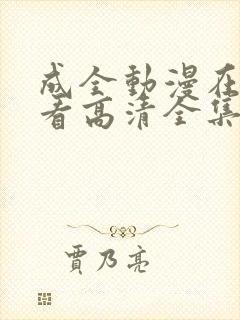 成全動漫在
看高清全集
賈乃亮